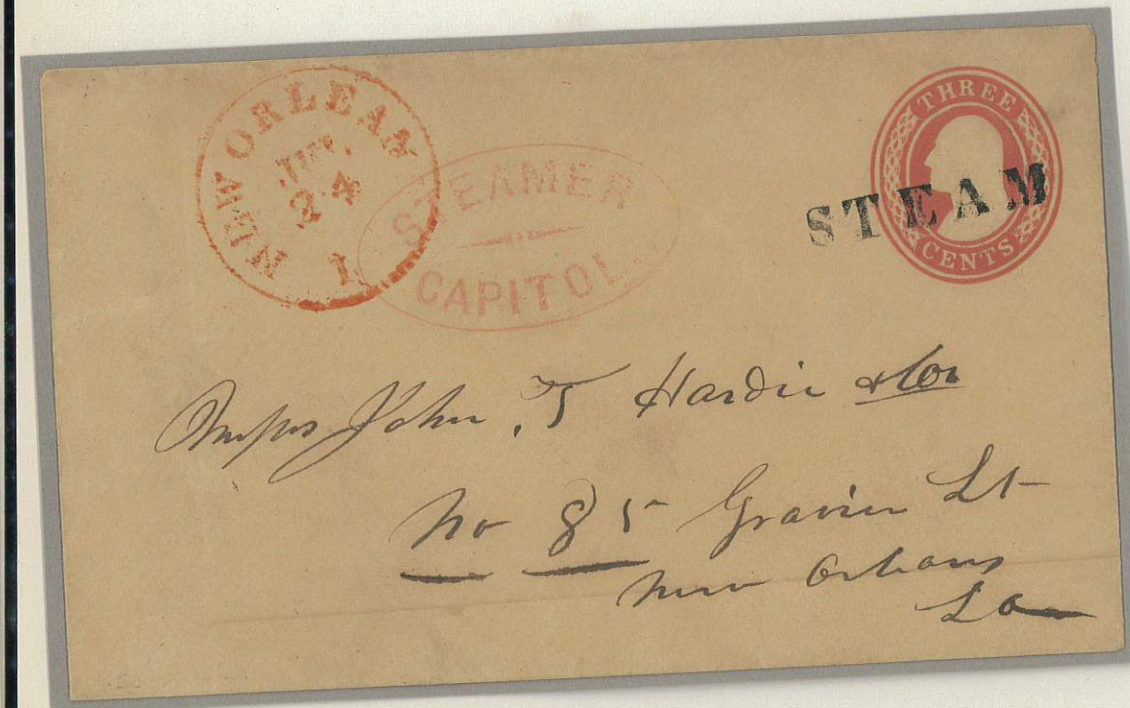 NEW ORLEAN
JUL
24
L
STEAMER
CAPITOL.
THREE
CENTS
STEAM
Messrs John, T Hardie & Co
No 85 Gravier St
New Orleans
La